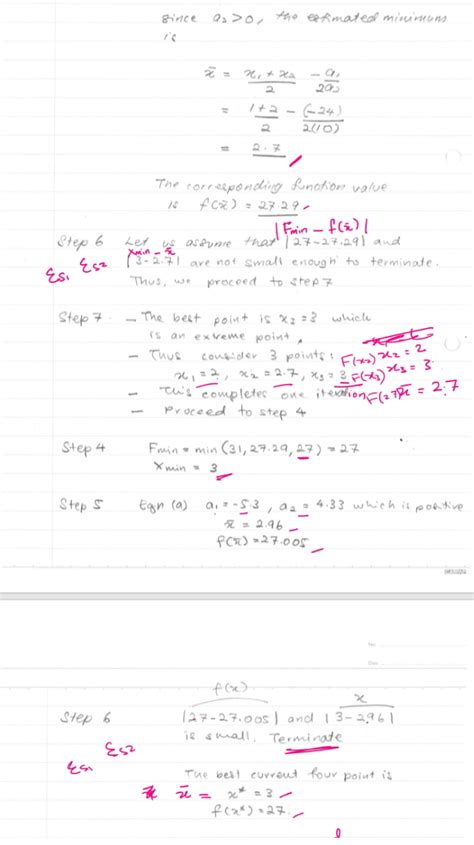 since a₂>0, the estimated minimum
is
x̄ = x₁+x₂/2 - a₁/2a₂
= 1+2/2 - (-24)/2(10)
= 2.7
The corresponding function value
is f(x̄) = 27.29
|Fmin - f(x̄)|
Step 6 Let us assume that |27-27.29| and
xmin - x̄
εs₁ εs₂ |3-2.7| are not small enough to terminate.
Thus, we proceed to step 7
Step 7 - The best point is x₂=3 which
is an extreme point.
- Thus consider 3 points: F(x₂) x₂ = 2
x₁ = 2, x₂ = 2.7, x₃ = 3 F(x₃) x₃ = 3
- This completes one iteration F(2.7) x̄ = 2.7
- Proceed to step 4
Step 4 Fmin = min (31, 27.29, 27) = 27
Xmin = 3
Step 5 Eqn (a) a₁ = -5.3, a₂ = 4.33 which is positive
x̄ = 2.96
f(x̄) = 27.005
No.
Date
f(x) x
Step 6 |27-27.005| and |3-2.96|
is small. Terminate
εs₁ εs₂
The best current four point is
x̄ = x* = 3
f(x*) = 27